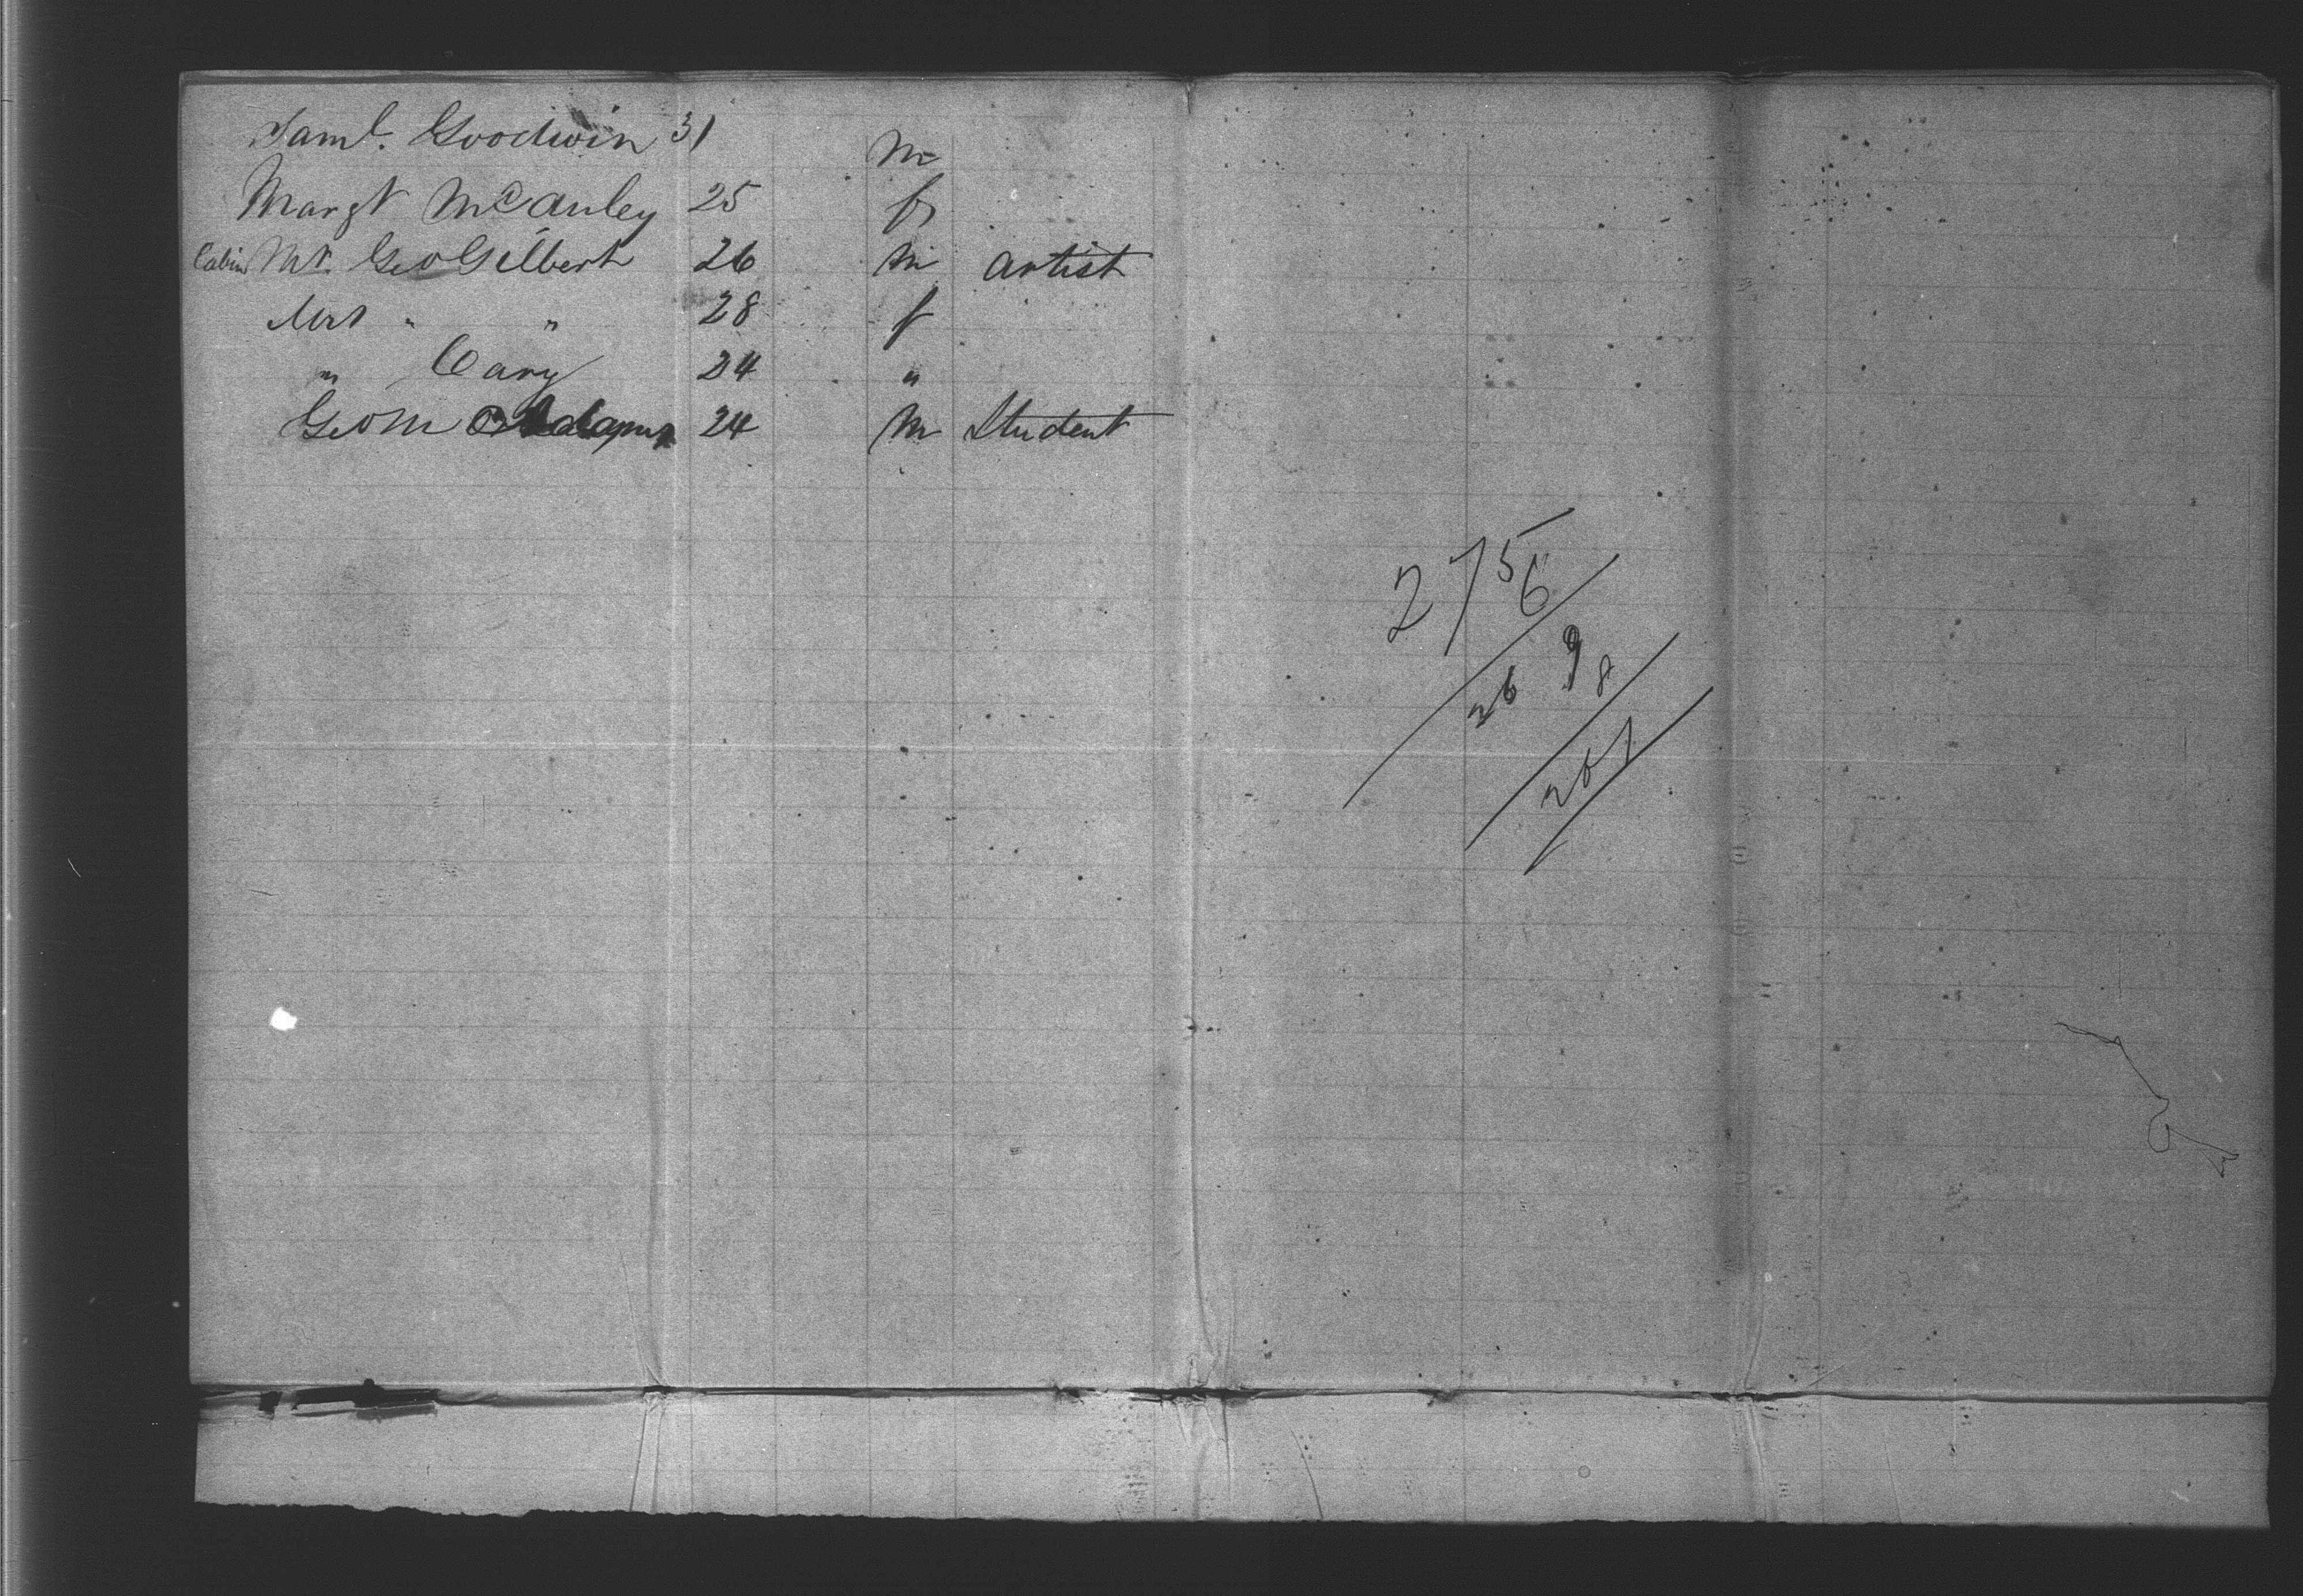 Saml. Goodwin 31 m
Margt McAuley 25 f
Cabin Mr. Geo Gilbert 26 m artist
Mrs " " 28 f
" Cary 24 "
Geo M Adams 24 m Student
2756
26 98
267